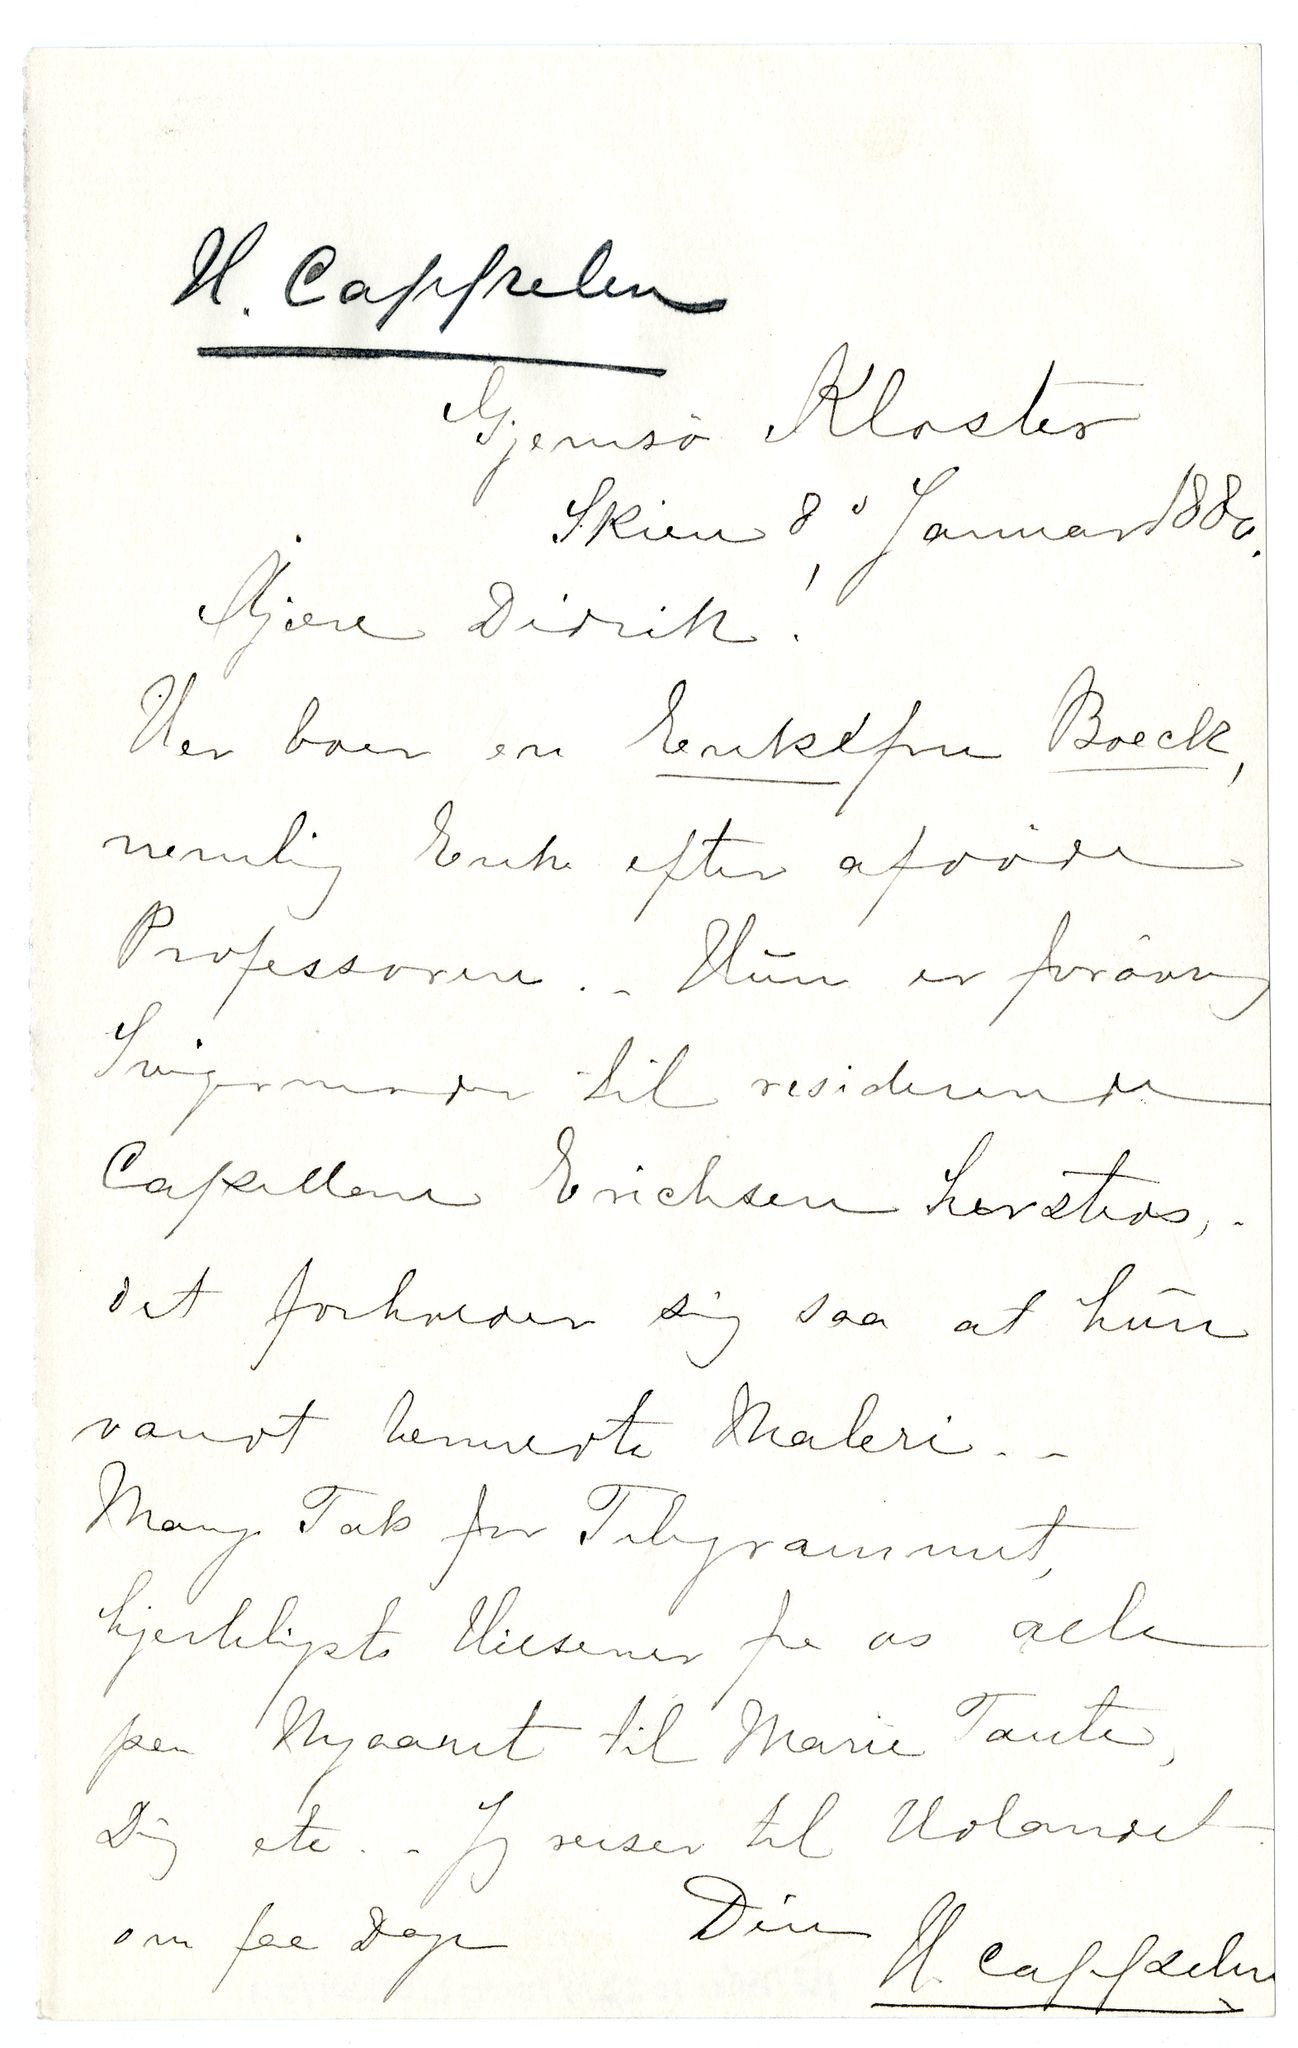 H. Cappelen
Gjemsö Kloster
Skien 8, Januar 1880.
Kjære Didrik!
Her boer en Enkefru Boeck,
nemlig Enke efter afdöde
Professoren. - Hun er forövrig
Svigermoder til residerende
Capellan Erichsen hersteds, -
det forholder sig saa at hun
vandt bemeldte Maleri. -
Mange Tak for Telegrammet,
hjerteligste Hilsener fra os alle
paa Nyaaret til Marie Tante,
Dig etc. - Jeg reiser til Udlandet
om faa Dage Din
H. Cappelen